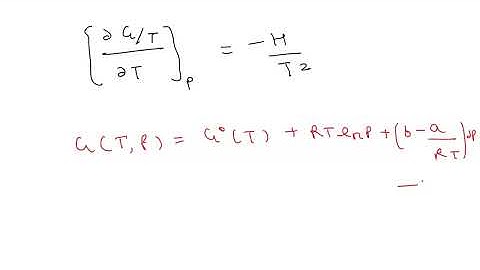 [∂ G/T / ∂T]_P = -H / T2
G(T, P) = G°(T) + RT ln P + (b - a / RT)